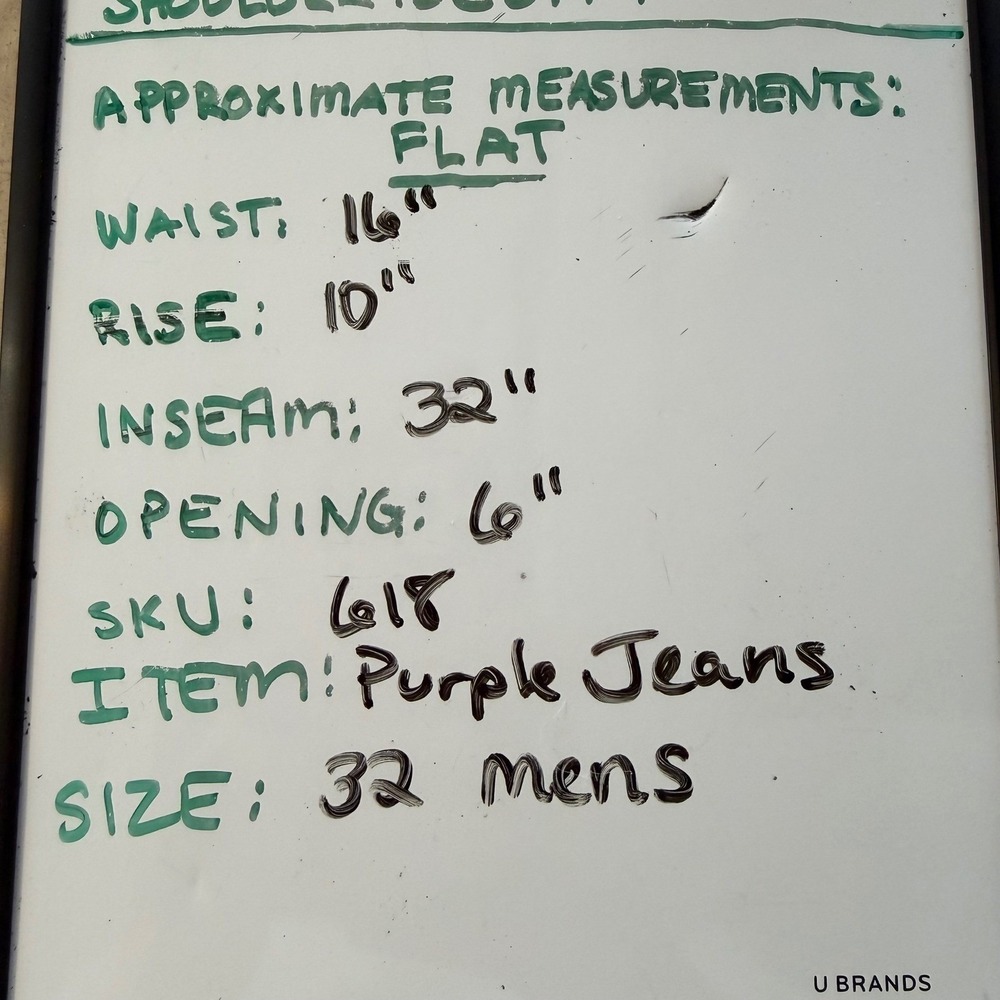 APPROXIMATE MEASUREMENTS:
FLAT
WAIST: 16"
RISE: 10"
INSEAM: 32"
OPENING: 6"
SKU: 618
ITEM: Purple Jeans
SIZE: 32 mens
U BRANDS